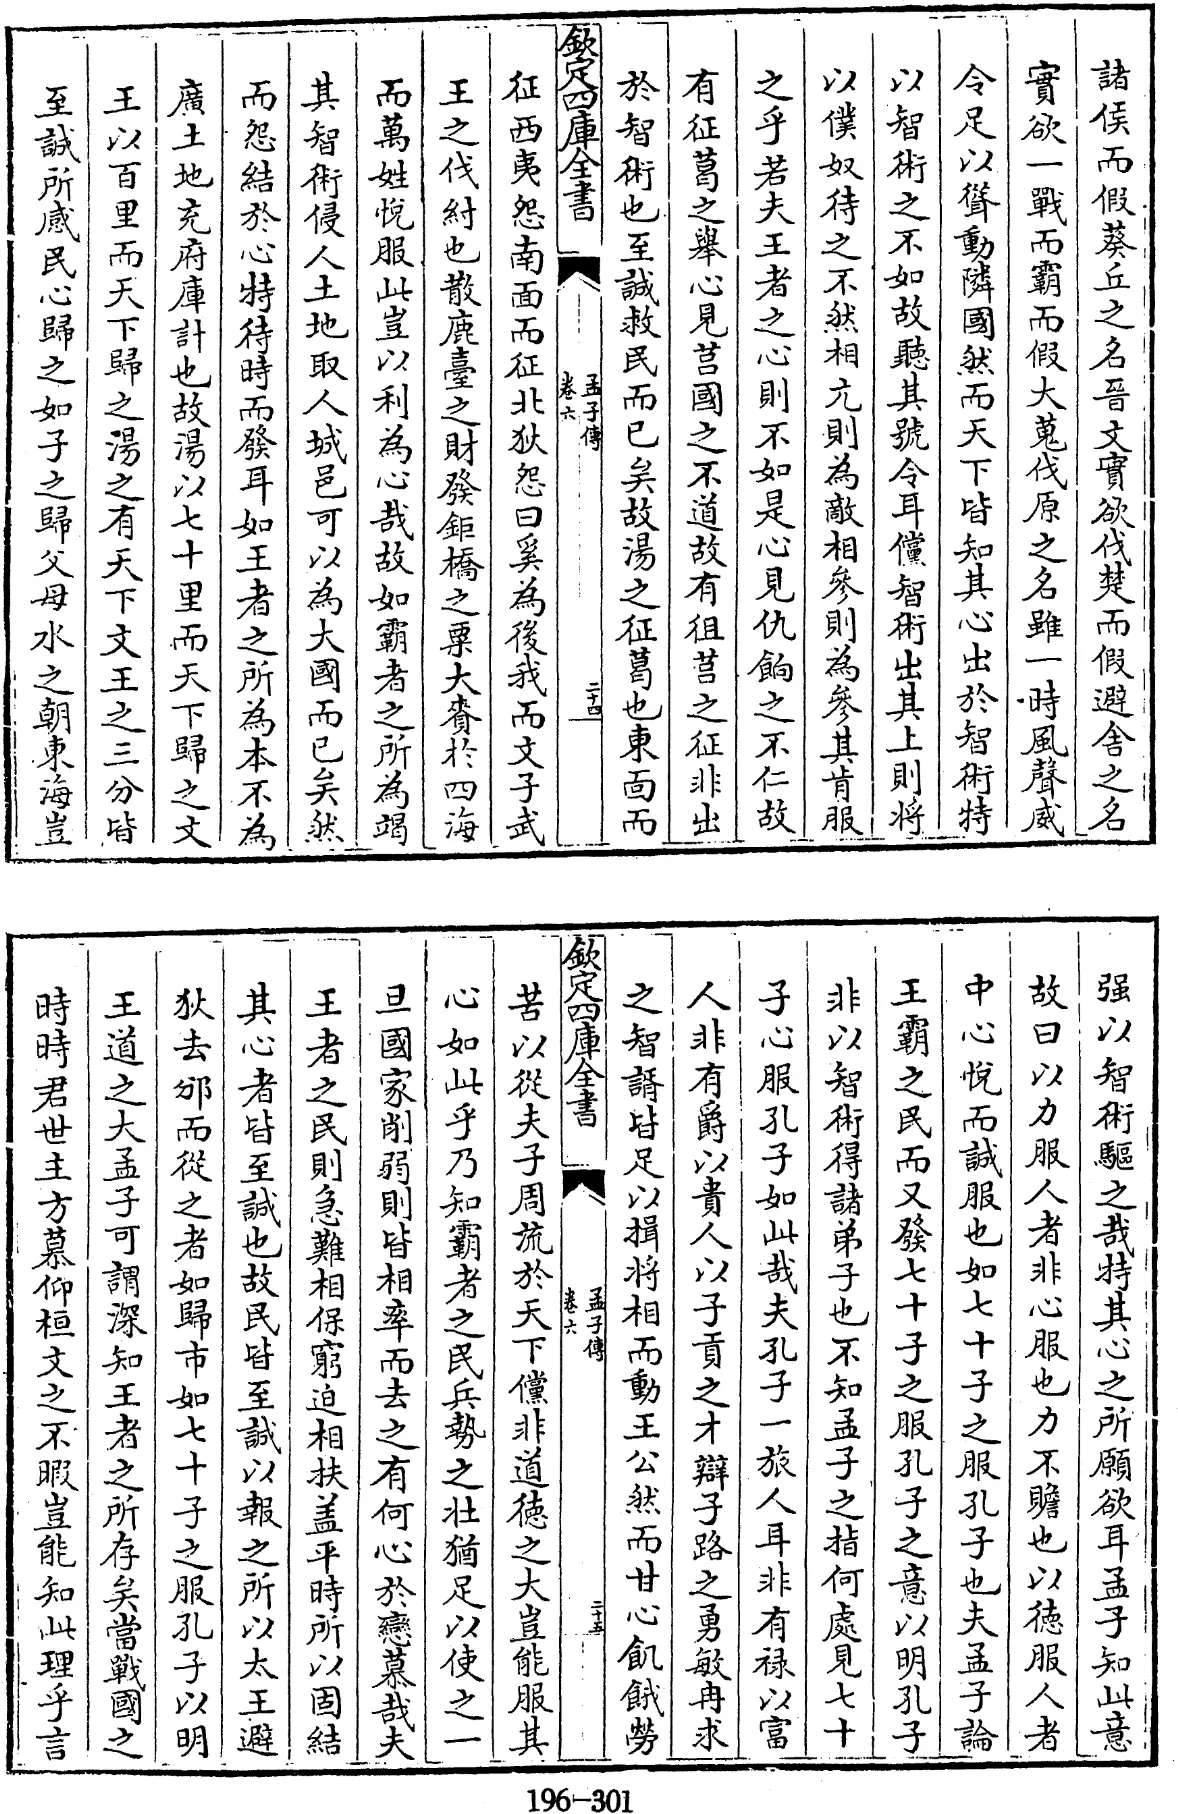 諸侯而假葵丘之名晉文實欲伐楚而假避舎之名
實欲一戰而霸而假大蒐伐原之名雖一時風聲威
令足以聳動隣國然而天下皆知其心出於智術特
以智術之不如故聽其號令耳儻智術出其上則將
以僕奴待之不然相亢則為敵相參則為參其肯服
之乎若夫王者之心則不如是心見仇餉之不仁故
有征葛之舉心見莒國之不道故有徂莒之征非出
於智術也至誠救民而已矣故湯之征葛也東面而
欽定四庫全書
孟子傳
卷六
二十四
征西夷怨南面而征北狄怨曰奚為後我而文子武
王之伐紂也散鹿臺之財發鉅橋之粟大賚於四海
而萬姓悅服此豈以利為心哉故如霸者之所為竭
其智術侵人土地取人城邑可以為大國而已矣然
而怨結於心特待時而發耳如王者之所為本不為
廣土地充府庫計也故湯以七十里而天下歸之文
王以百里而天下歸之湯之有天下文王之三分皆
至誠所感民心歸之如子之歸父母水之朝東海豈
强以智術驅之哉特其心之所願欲耳孟子知此意
故曰以力服人者非心服也力不贍也以徳服人者
中心悅而誠服也如七十子之服孔子也夫孟子論
王霸之民而又發七十子之服孔子之意以明孔子
非以智術得諸弟子也不知孟子之指何處見七十
子心服孔子如此哉夫孔子一旅人耳非有禄以富
人非有爵以貴人以子貢之才辯子路之勇敏冉求
之智諝皆足以揖將相而動王公然而甘心飢餓勞
欽定四庫全書
孟子傳
卷六
二十五
苦以從夫子周流於天下儻非道徳之大豈能服其
心如此乎乃知霸者之民兵勢之壯猶足以使之一
旦國家削弱則皆相率而去之有何心於戀慕哉夫
王者之民則急難相保窮迫相扶盖平時所以固結
其心者皆至誠也故民皆至誠以報之所以太王避
狄去邠而從之者如歸市如七十子之服孔子以明
王道之大孟子可謂深知王者之所存矣當戰國之
時時君世主方慕仰桓文之不暇豈能知此理乎言
196-301